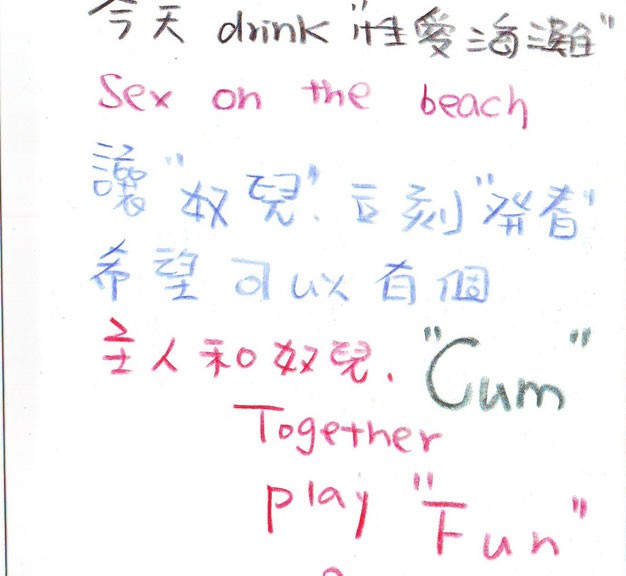 今天 drink "性愛海灘"
Sex on the beach
讓"奴兒"立刻"發春"
希望可以有個
主人和奴兒. "Cum"
Together
play "Fun"